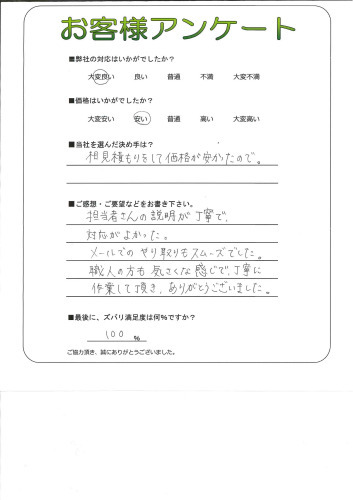 お客様アンケート
■弊社の対応はいかがでしたか？
大変良い　良い　普通　不満　大変不満
■価格はいかがでしたか？
大変安い　安い　普通　高い　大変高い
■当社を選んだ決め手は？
相見積もりをして価格が安かたので。
■ご感想・ご要望などをお書き下さい。
担当者さんの説明が丁寧で、
対応がよかった。
メールでのやり取りもスムーズでした。
職人の方も気さくな感じで、丁寧に
作業して頂き、ありがとうございました。
■最後に、ズバリ満足度は何％ですか？
100 ％
ご協力頂き、誠にありがとうございました。